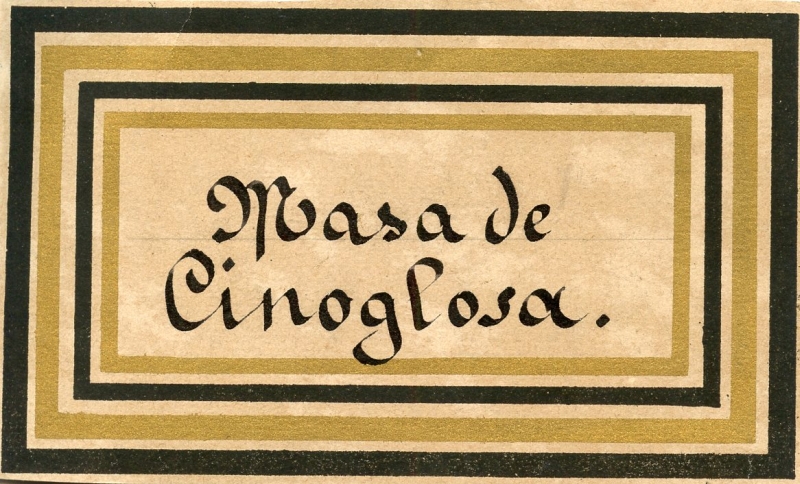 Masa de
Cinoglosa.